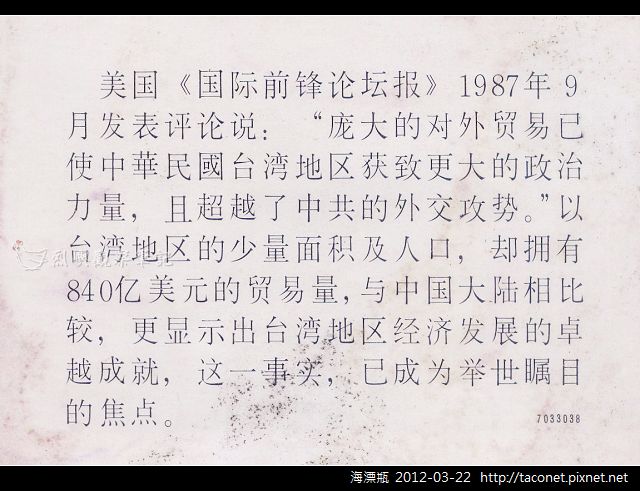 美国《国际前锋论坛报》1987年9
月发表评论说：“庞大的对外贸易已
使中華民國台湾地区获致更大的政治
力量，且超越了中共的外交攻势。”以
台湾地区的少量面积及人口，却拥有
840亿美元的贸易量，与中国大陆相比
较，更显示出台湾地区经济发展的卓
越成就，这一事实，已成为举世瞩目
的焦点。
7033038
海漂瓶 2012-03-22 http://taconet.pixnet.net